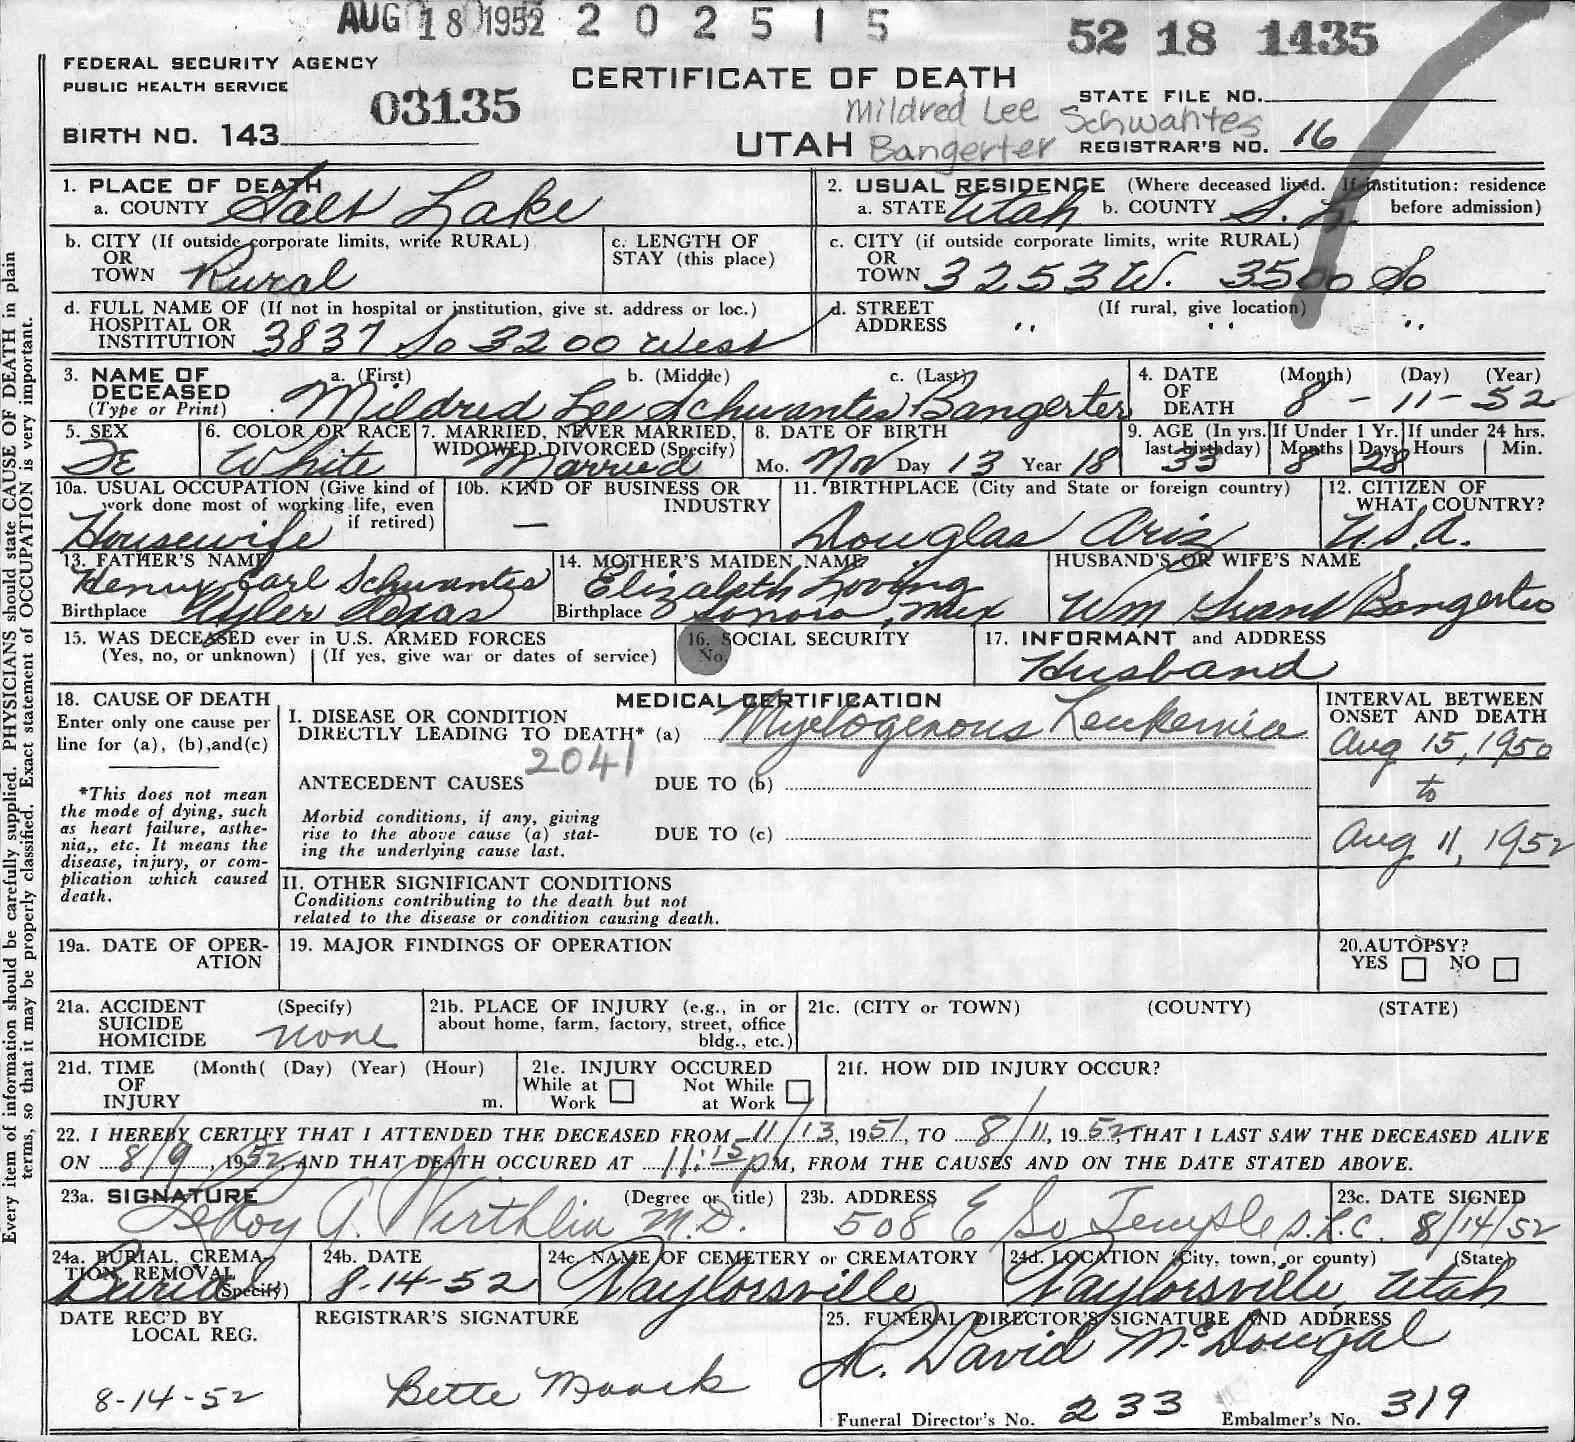 AUG 18 1952 2 0 2 5 1 5 52 18 1435
FEDERAL SECURITY AGENCY
PUBLIC HEALTH SERVICE
03135
CERTIFICATE OF DEATH
STATE FILE NO.
Mildred Lee Schwantes
BIRTH NO. 143
UTAH Bangerter
REGISTRAR'S NO. 16
1. PLACE OF DEATH
a. COUNTY Salt Lake
2. USUAL RESIDENCE (Where deceased lived. If institution: residence
a. STATE Utah b. COUNTY S. L. before admission)
b. CITY (If outside corporate limits, write RURAL)
OR
TOWN Rural
c. LENGTH OF
STAY (this place)
c. CITY (if outside corporate limits, write RURAL)
OR
TOWN 3253 W. 3500 So
d. FULL NAME OF (If not in hospital or institution, give st. address or loc.)
HOSPITAL OR
INSTITUTION 3837 So 3200 West
d. STREET (If rural, give location)
ADDRESS " " "
3. NAME OF
DECEASED
(Type or Print)
a. (First) b. (Middle) c. (Last)
Mildred Lee Schwantes Bangerter
4. DATE (Month) (Day) (Year)
OF
DEATH 8 - 11 - 52
5. SEX
Fe
6. COLOR OR RACE
White
7. MARRIED, NEVER MARRIED,
WIDOWED, DIVORCED (Specify)
Married
8. DATE OF BIRTH
Mo. Nov Day 13 Year 18
9. AGE (In yrs. last birthday) 33
If Under 1 Yr. Months 8 Days 28
If under 24 hrs. Hours Min.
10a. USUAL OCCUPATION (Give kind of
work done most of working life, even
if retired)
Housewife
10b. KIND OF BUSINESS OR
INDUSTRY
—
11. BIRTHPLACE (City and State or foreign country)
Douglas Ariz
12. CITIZEN OF
WHAT COUNTRY?
U.S.A.
13. FATHER'S NAME
Henry Carl Schwantes
Birthplace Tyler Texas
14. MOTHER'S MAIDEN NAME
Elizabeth Loving
Birthplace Sonora, Mex
HUSBAND'S OR WIFE'S NAME
Wm Grant Bangerter
15. WAS DECEASED ever in U.S. ARMED FORCES
(Yes, no, or unknown) (If yes, give war or dates of service)
16. SOCIAL SECURITY
No.
17. INFORMANT and ADDRESS
Husband
18. CAUSE OF DEATH
Enter only one cause per
line for (a), (b),and(c)
*This does not mean
the mode of dying, such
as heart failure, asthe-
nia,, etc. It means the
disease, injury, or com-
plication which caused
death.
MEDICAL CERTIFICATION
I. DISEASE OR CONDITION
DIRECTLY LEADING TO DEATH* (a) Myelogenous Leukemia
2041
ANTECEDENT CAUSES DUE TO (b)
Morbid conditions, if any, giving
rise to the above cause (a) stat-
ing the underlying cause last.
DUE TO (c)
INTERVAL BETWEEN
ONSET AND DEATH
Aug 15, 1950
to
Aug 11, 1952
II. OTHER SIGNIFICANT CONDITIONS
Conditions contributing to the death but not
related to the disease or condition causing death.
19a. DATE OF OPER-
ATION
19. MAJOR FINDINGS OF OPERATION
20. AUTOPSY?
YES NO
21a. ACCIDENT (Specify)
SUICIDE
HOMICIDE none
21b. PLACE OF INJURY (e.g., in or
about home, farm, factory, street, office
bldg., etc.)
21c. (CITY or TOWN) (COUNTY) (STATE)
21d. TIME (Month( (Day) (Year) (Hour)
OF
INJURY m.
21e. INJURY OCCURED
While at Work Not While at Work
21f. HOW DID INJURY OCCUR?
22. I HEREBY CERTIFY THAT I ATTENDED THE DECEASED FROM 11/13, 1951, TO 8/11, 1952, THAT I LAST SAW THE DECEASED ALIVE
ON 8/9, 1952, AND THAT DEATH OCCURED AT 11:15 pM, FROM THE CAUSES AND ON THE DATE STATED ABOVE.
23a. SIGNATURE (Degree or title)
LeRoy A. Wirthlin M.D.
23b. ADDRESS
508 E So Temple S.L.C.
23c. DATE SIGNED
8/14/52
24a. BURIAL, CREMA-
TION, REMOVAL
(Specify)
Burial
24b. DATE
8-14-52
24c. NAME OF CEMETERY or CREMATORY
Taylorsville
24d. LOCATION (City, town, or county) (State)
Taylorsville, Utah
DATE REC'D BY
LOCAL REG.
8-14-52
REGISTRAR'S SIGNATURE
Bette
25. FUNERAL DIRECTOR'S SIGNATURE AND ADDRESS
David McDougal
Funeral Director's No. 233 Embalmer's No. 319
Every item of information should be carefully supplied. PHYSICIANS should state CAUSE OF DEATH in plain
terms, so that it may be properly classified. Exact statement of OCCUPATION is very important.